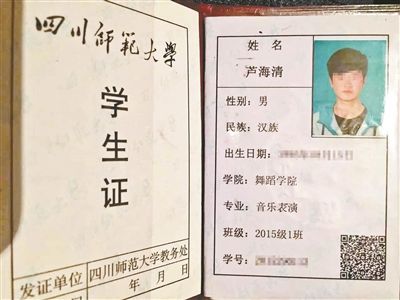 四川師範大學
学
生
证
发证单位 四川师范大学教务处
年 月 日
姓 名
芦海清
性别：男
民族：汉族
出生日期：
学院：舞蹈学院
专业：音乐表演
班级：2015级1班
学号：